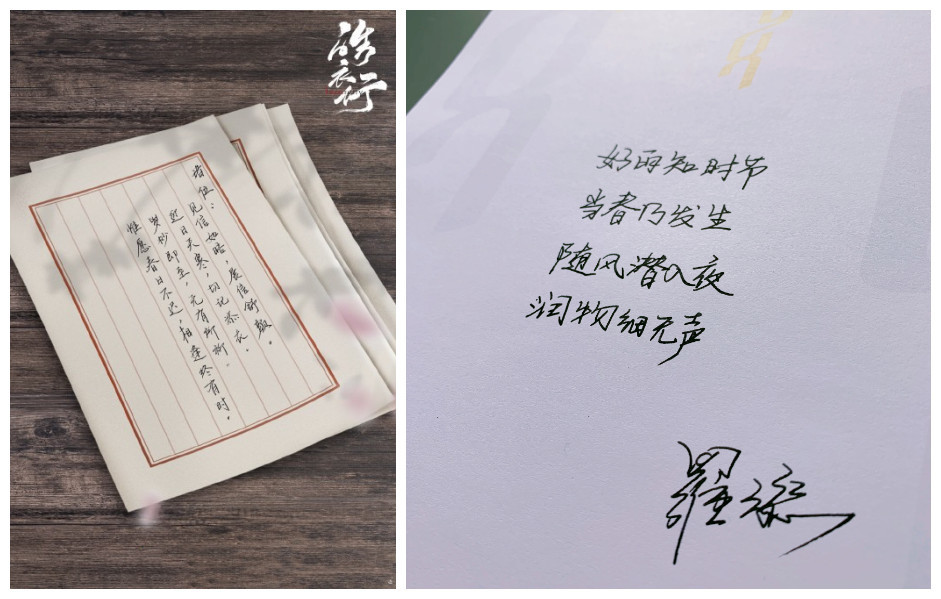 皓衣行
诸位：
见信如晤，展信舒颜。
近日天寒，切记添衣。
岁杪即至，有所。
惟愿春日不迟，相逢终有时。
好雨知时节
当春乃发生
随风潜入夜
润物细无声